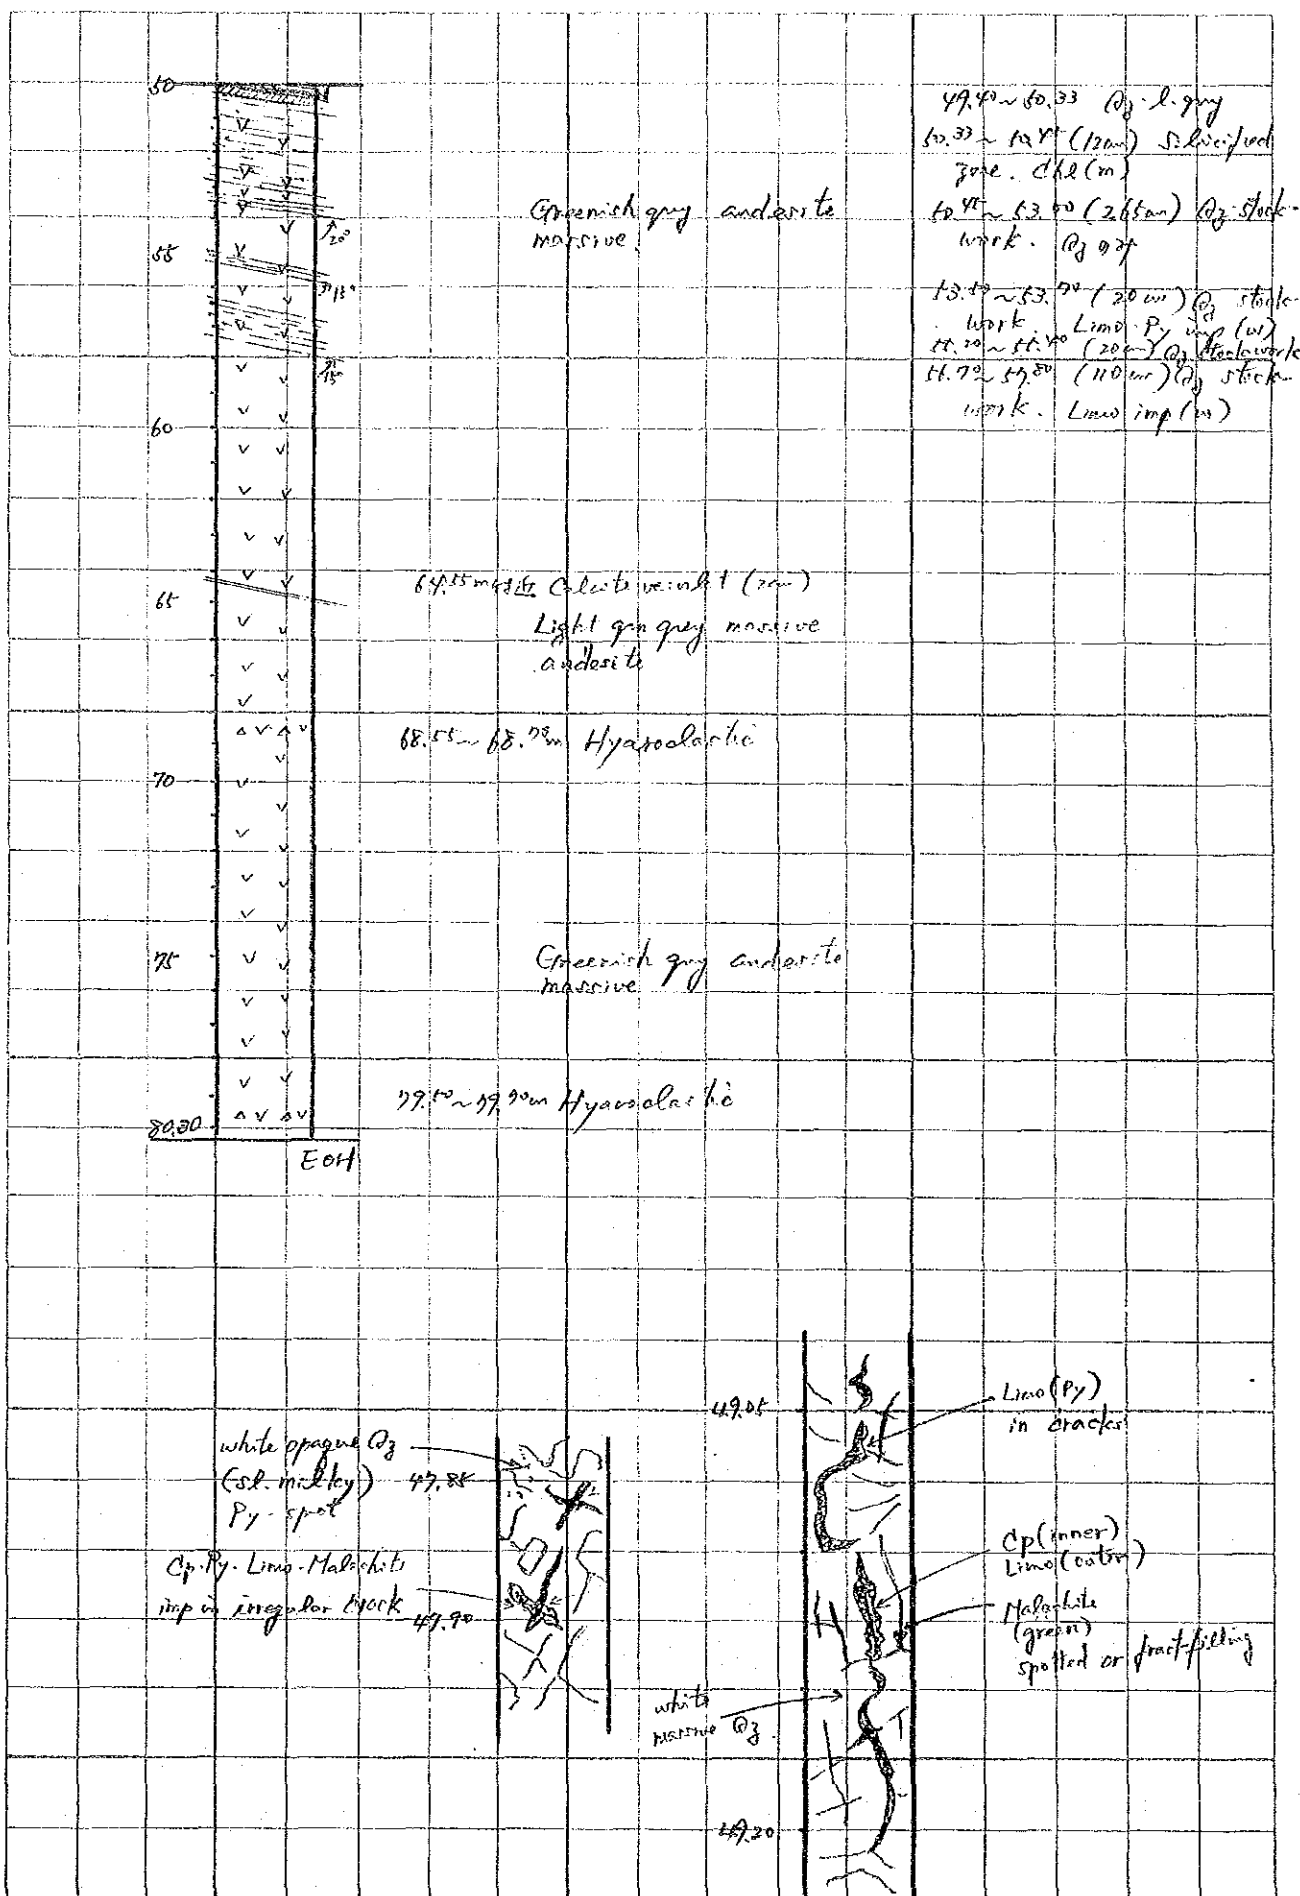 50
55
60
65
70
75
80.30
EOH
20°
15°
15
Greenish grey andesite
massive.
64.55m付近 Calcite veinlet (2cm)
Light grn grey massive
andesite
68.55~68.70m Hyaroclastic
Greenish grey andesite
massive
79.50~79.90m Hyaroclastic
49.40~50.33 Qz-l.grey
50.33~50.45 (12cm) Silicified
zone. Chl(m)
50.45~53.10 (265cm) Qz-stock-
work. Qz
53.50~53.70 (20cm) Qz stock-
work. Limo-Py imp (w)
55.20~55.40 (20cm) Qz stockwork
56.70~57.80 (110cm) Qz stock-
work. Limo imp (w)
white opaque Qz
(sl. milky) 47.85
Py-spot
Cp-Py-Limo-Malachite
imp in irregular crack 47.90
49.05
Limo(Py)
in cracks
Cp(inner)
Limo(outer)
Malachite
(green)
spotted or fract-filling
white
massive Qz.
49.20